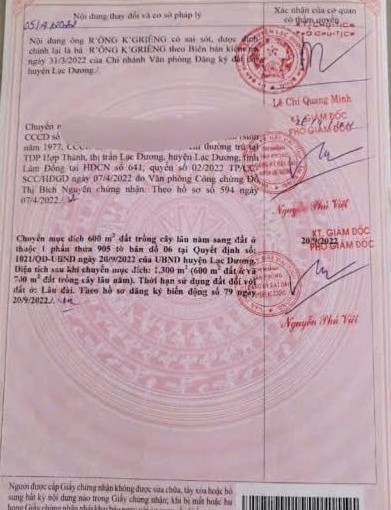 Nội dung thay đổi và cơ sở pháp lý
Xác nhận của cơ quan
có thẩm quyền
Nội dung ông R'ÔNG K'GRIÊNG có sai sót, được đính
chính lại là bà R'ÔNG K'GRIÊNG theo Biên bản kiểm
ngày 31/3/2022 của Chi nhánh Văn phòng Đăng ký đất
huyện Lạc Dương./.
Lê Chí Quang Minh
PHÓ GIÁM ĐỐC
Chuyển n
CCCD số
năm 1977, CCC thường trú tại
TDP Hợp Thành, thị trấn Lạc Dương, huyện Lạc Dương, tỉnh
Lâm Đồng tại HĐCN số 641, quyển số 02/2022 TP/CC-
SCC/HĐGD ngày 07/4/2022 do Văn phòng Công chứng Đỗ
Thị Bích Nguyên chứng nhận. Theo hồ sơ số 594 ngày
07/4/2022./.
Nguyễn Phú Việt
KT. GIÁM ĐỐC
PHÓ GIÁM ĐỐC
20/9/2022
Chuyển mục đích 600 m² đất trồng cây lâu năm sang đất ở
thuộc 1 phần thửa 905 tờ bản đồ 06 tại Quyết định số:
1021/QĐ-UBND ngày 20/9/2022 của UBND huyện Lạc Dương.
Diện tích sau khi chuyển mục đích: 1.300 m² (600 m² đất ở và
700 m² đất trồng cây lâu năm). Thời hạn sử dụng đất đối với
đất ở: Lâu dài. Theo hồ sơ đăng ký biến động số 79 ngày
20/9/2022./.
Nguyễn Phú Việt
Người được cấp Giấy chứng nhận không được sửa chữa, tẩy xóa hoặc bổ
sung bất kỳ nội dung nào trong Giấy chứng nhận; khi bị mất hoặc hư